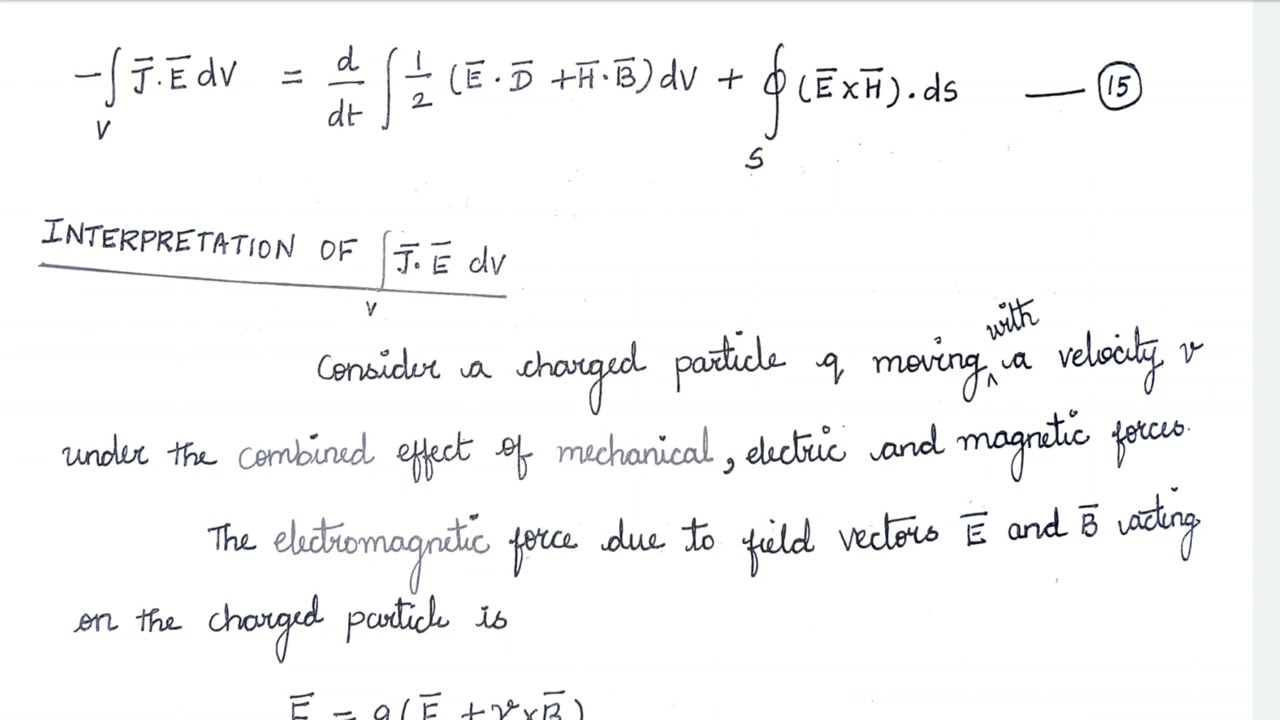 -∫_V J̅.E̅ dV = d/dt ∫ 1/2 (E̅ · D̅ + H̅ · B̅) dV + ∮_S (E̅ x H̅) . ds — (15)
INTERPRETATION OF ∫_V J̅. E̅ dV
Consider a charged particle q moving with a velocity v
under the combined effect of mechanical, electric and magnetic forces.
The electromagnetic force due to field vectors E̅ and B̅ acting
on the charged particle is
F̅ = q(E̅ + v x B̅)